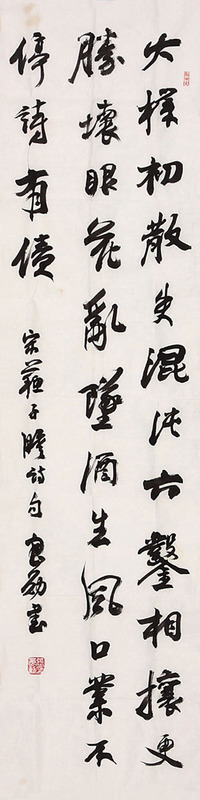 大樸初散失混沌六鑿相攘更
勝壞眼花亂墜酒生風口業不
停詩有債
宋蘇子瞻詩句 良勋書